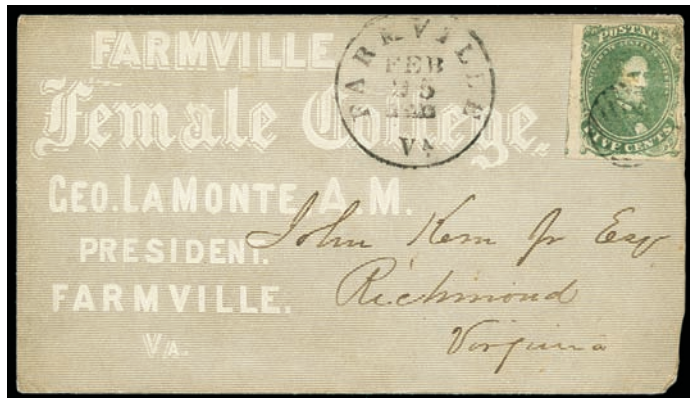 FARMVILLE
Female College.
GEO. LAMONTE A. M.
PRESIDENT.
FARMVILLE.
VA.
FARMVILLE
FEB
VA
POSTAGE
FIVE CENTS
John Kern Jr Esq
Richmond
Virginia